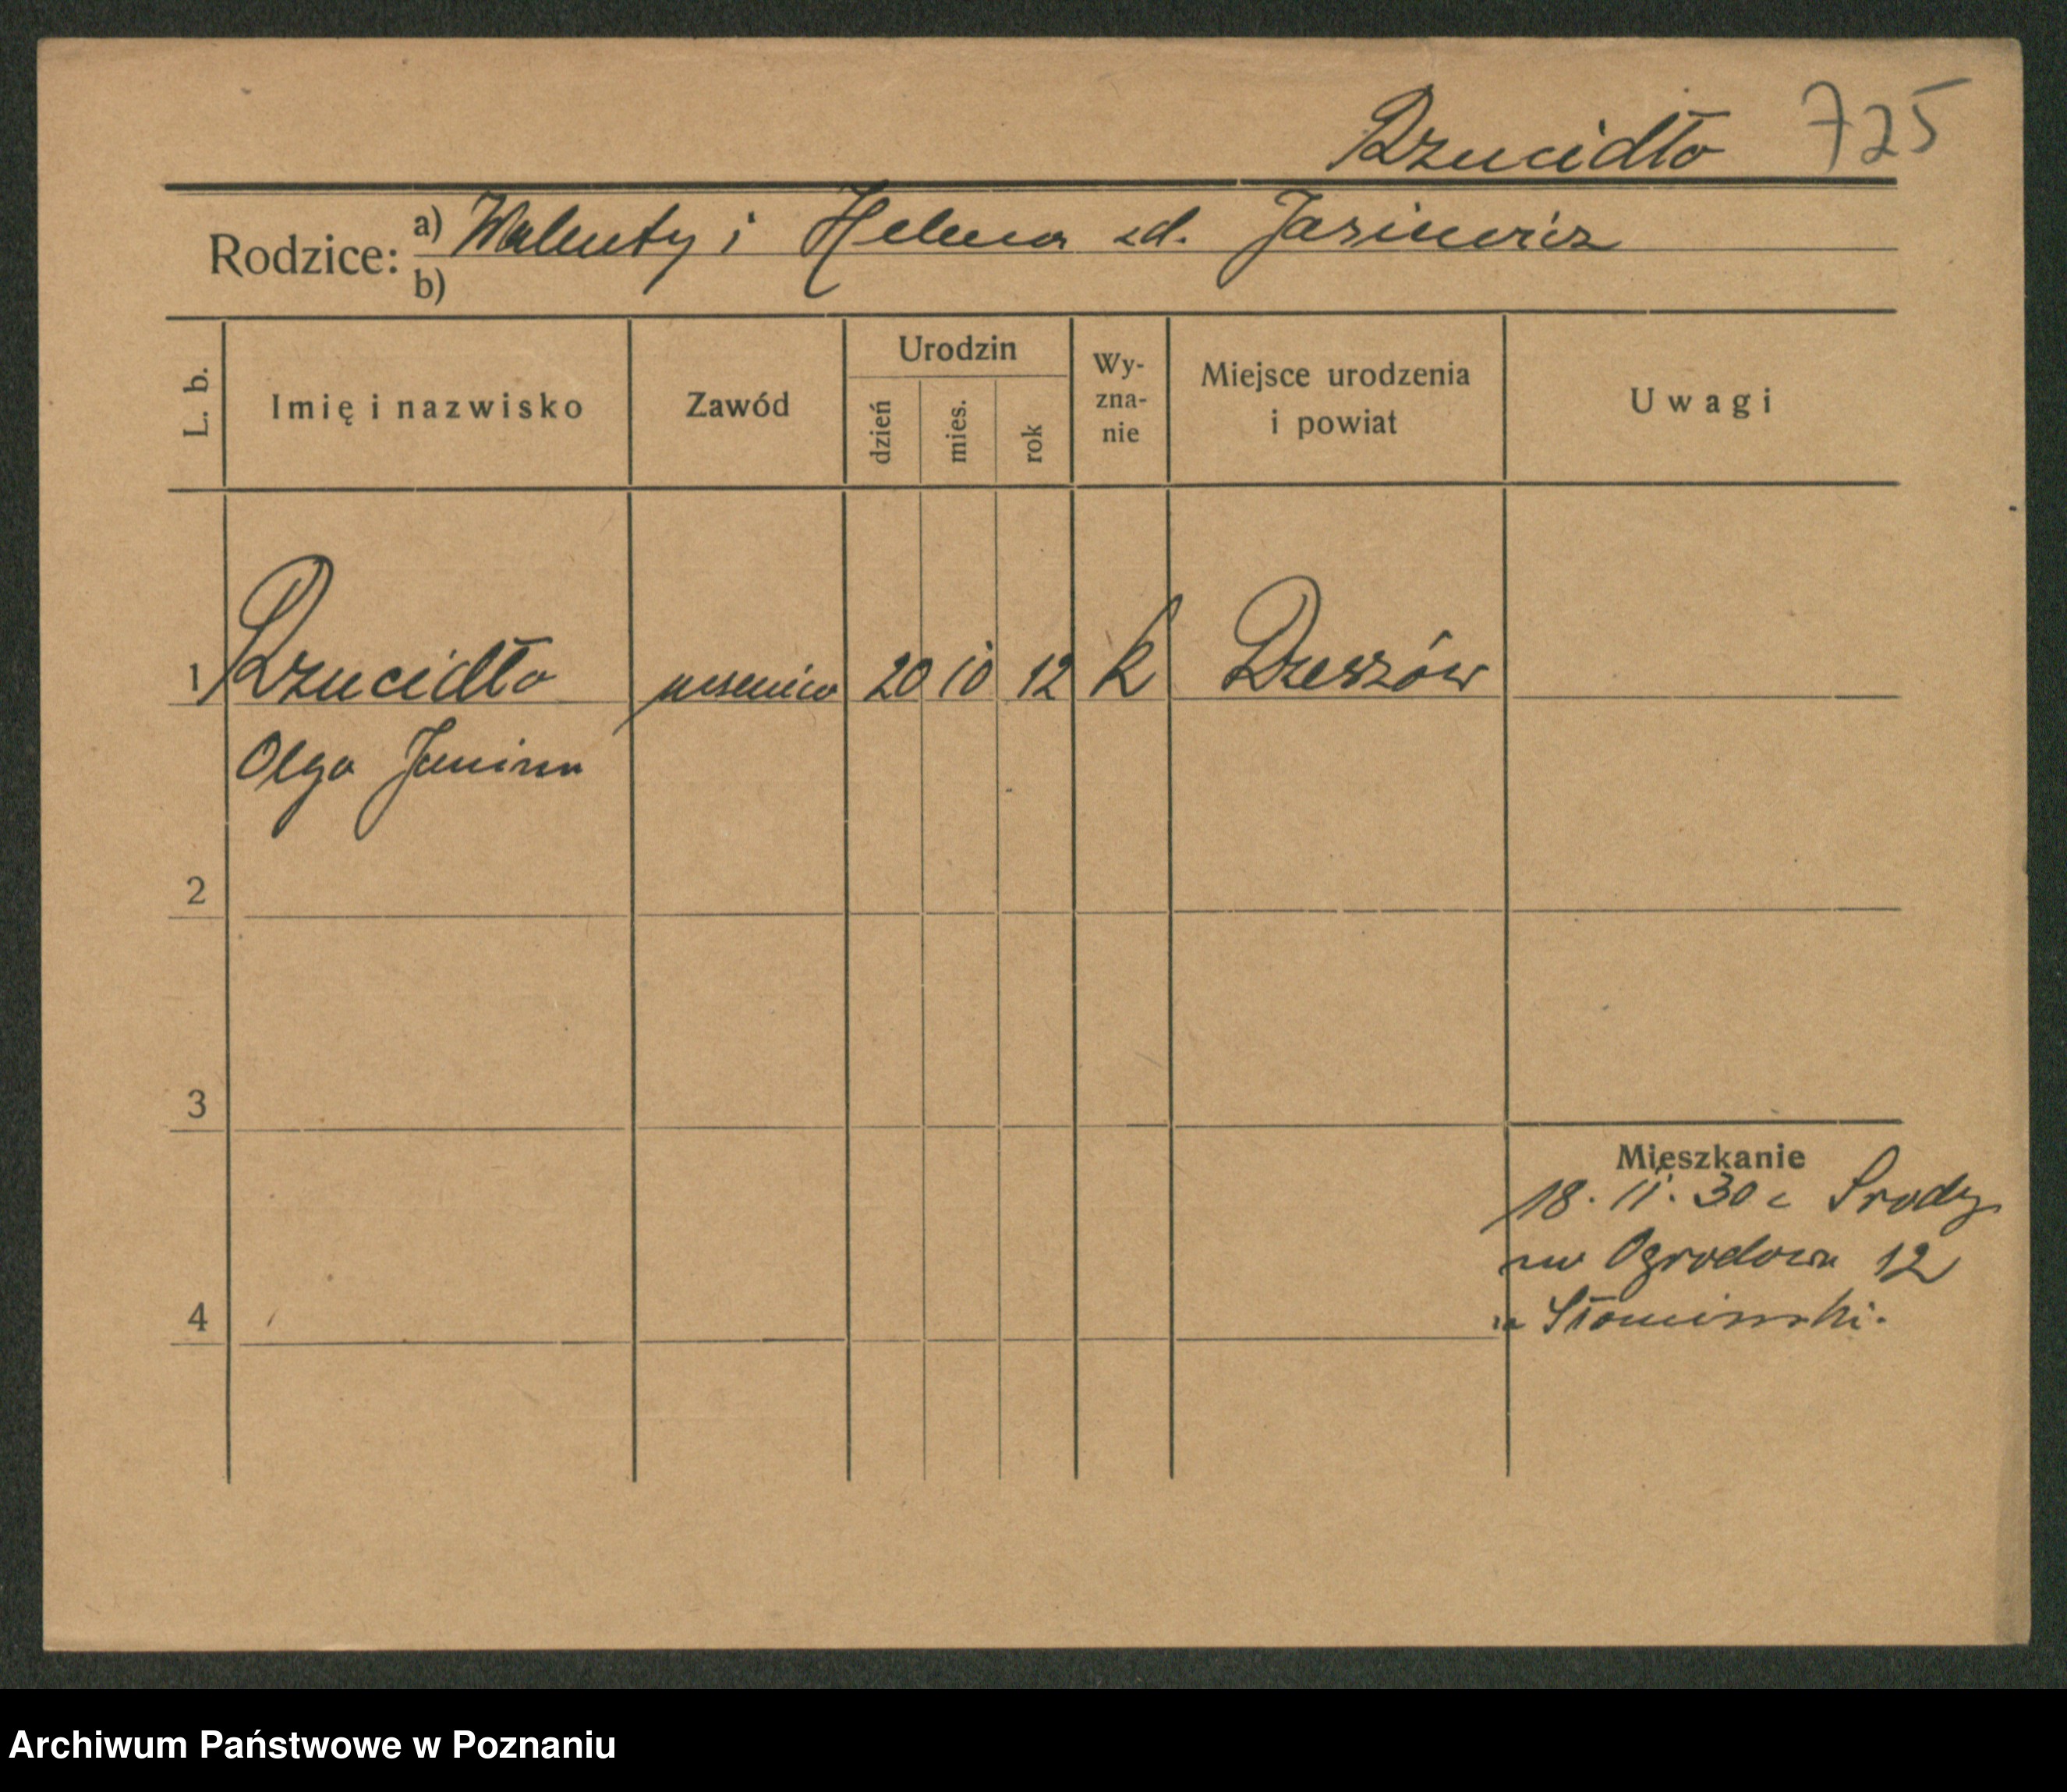 Rzucidło 725
Rodzice: a) Walenty i Helena zd. Jasiewicz
b)
L. b.
Imię i nazwisko
Zawód
Urodzin
dzień
mies.
rok
Wy-
zna-
nie
Miejsce urodzenia
i powiat
Uwagi
1 Rzucidło 20 10 12 k Rzeszów
Olga Janina
2
3
Mieszkanie
18. 11. 30 z Środy
Ogrodowa 12
4
Słomiński.
Archiwum Państwowe w Poznaniu